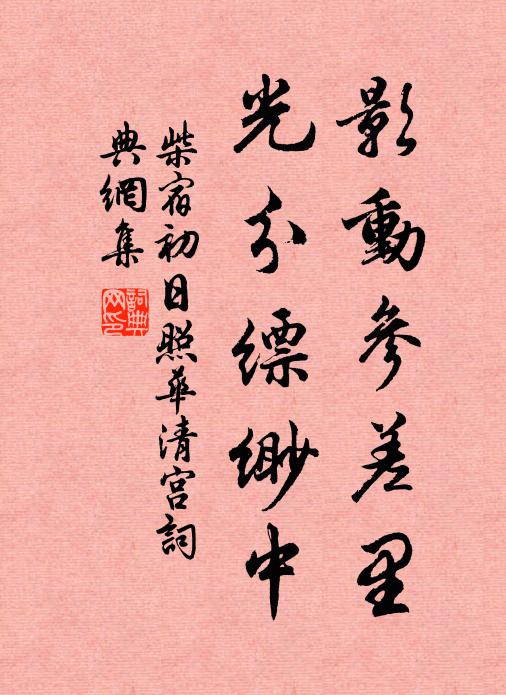 影動參差里
光分縹緲中
柴宿初日照華清宮詞
典網集
詞典网印